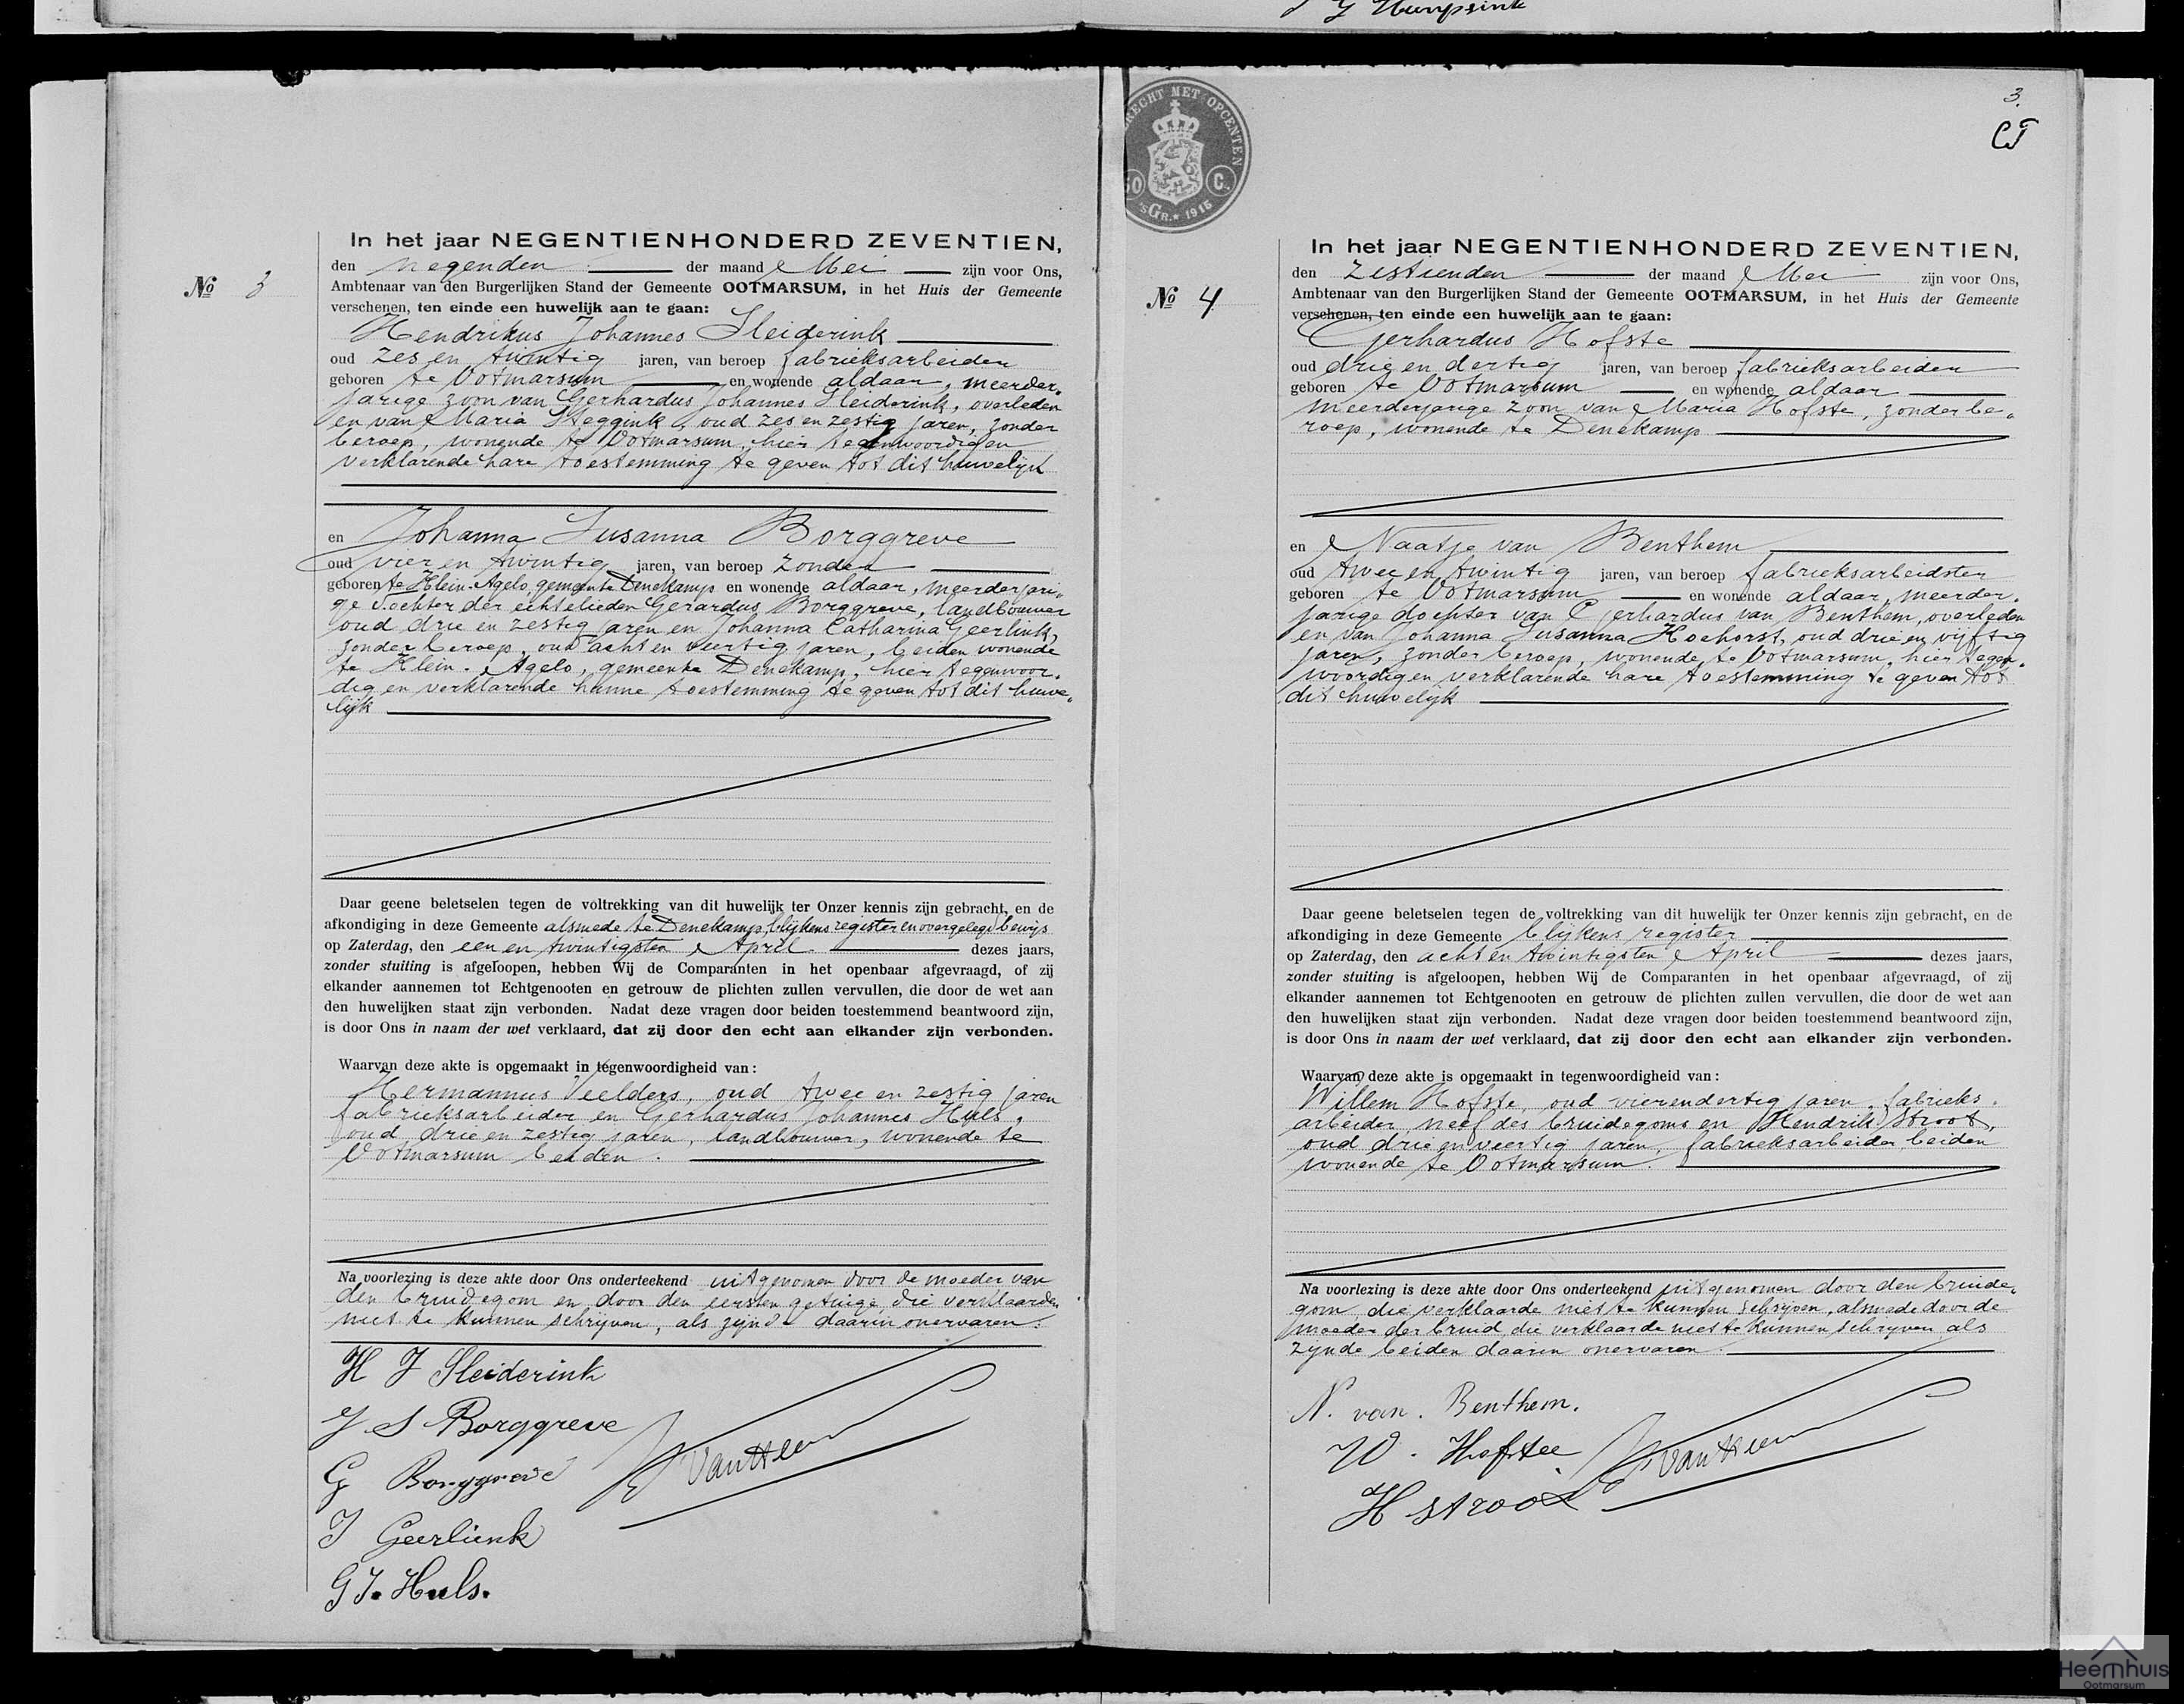 J Humpsink
Nº 3
In het jaar NEGENTIENHONDERD ZEVENTIEN,
den negenden der maand Mei zijn voor Ons,
Ambtenaar van den Burgerlijken Stand der Gemeente OOTMARSUM, in het Huis der Gemeente
verschenen, ten einde een huwelijk aan te gaan:
Hendrikus Johannes Sleiderink
oud zes en twintig jaren, van beroep fabrieksarbeider
geboren te Ootmarsum en wonende aldaar, meerder-
jarige zoon van Gerhardus Johannes Sleiderink, overleden
en van Maria Steggink, oud zes en zestig jaren, zonder
beroep, wonende te Ootmarsum, hier tegenwoordig en
verklarende hare toestemming te geven tot dit huwelijk
en Johanna Susanna Borggreve
oud vier en twintig jaren, van beroep zonder
geboren te Klein-Agelo gemeente Denekamp en wonende aldaar, meerderjari-
ge dochter der echtelieden Gerardus Borggreve, landbouwer
oud drie en zestig jaren en Johanna Catharina Geerlink,
zonder beroep, oud acht en veertig jaren, beiden wonende
te Klein-Agelo, gemeente Denekamp, hier tegenwoor-
dig en verklarende hunne toestemming te geven tot dit huwe-
lijk
Daar geene beletselen tegen de voltrekking van dit huwelijk ter Onzer kennis zijn gebracht, en de
afkondiging in deze Gemeente alsmede te Denekamp, blijkens register en overgelegd bewijs
op Zaterdag, den een en twintigsten April dezes jaars,
zonder stuiting is afgeloopen, hebben Wij de Comparanten in het openbaar afgevraagd, of zij
elkander aannemen tot Echtgenooten en getrouw de plichten zullen vervullen, die door de wet aan
den huwelijken staat zijn verbonden. Nadat deze vragen door beiden toestemmend beantwoord zijn,
is door Ons in naam der wet verklaard, dat zij door den echt aan elkander zijn verbonden.
Waarvan deze akte is opgemaakt in tegenwoordigheid van:
Hermannus Veelders, oud twee en zestig jaren
fabrieksarbeider en Gerhardus Johannes Huls,
oud drie en zestig jaren, landbouwer, wonende te
Ootmarsum beiden.
Na voorlezing is deze akte door Ons onderteekend uitgenomen door de moeder van
den bruidegom en door den eersten getuige, die verklaarden
niet te kunnen schrijven, als zijnde daarin onervaren.
H J Sleiderink
J S Borggreve
G Borggreve
J Geerlienk
G J. Huls.
van Heen
RECHT MET OPCENTEN
50 C.
'sGR. 1915
3.
CJ
Nº 4
In het jaar NEGENTIENHONDERD ZEVENTIEN,
den zestienden der maand Mei zijn voor Ons,
Ambtenaar van den Burgerlijken Stand der Gemeente OOTMARSUM, in het Huis der Gemeente
verschenen, ten einde een huwelijk aan te gaan:
Gerhardus Hofste
oud drie en dertig jaren, van beroep fabrieksarbeider
geboren te Ootmarsum en wonende aldaar
meerderjarige zoon van Maria Hofste, zonder be-
roep, wonende te Denekamp
en Naatje van Benthem
oud twee en twintig jaren, van beroep fabrieksarbeidster
geboren te Ootmarsum en wonende aldaar, meerder-
jarige dochter van Gerhardus van Benthem, overleden
en van Johanna Susanna Hoehorst, oud drie en vijftig
jaren, zonder beroep, wonende te Ootmarsum, hier tegen-
woordig en verklarende hare toestemming te geven tot
dit huwelijk
Daar geene beletselen tegen de voltrekking van dit huwelijk ter Onzer kennis zijn gebracht, en de
afkondiging in deze Gemeente blijkens register
op Zaterdag, den acht en twintigsten April dezes jaars,
zonder stuiting is afgeloopen, hebben Wij de Comparanten in het openbaar afgevraagd, of zij
elkander aannemen tot Echtgenooten en getrouw de plichten zullen vervullen, die door de wet aan
den huwelijken staat zijn verbonden. Nadat deze vragen door beiden toestemmend beantwoord zijn,
is door Ons in naam der wet verklaard, dat zij door den echt aan elkander zijn verbonden.
Waarvan deze akte is opgemaakt in tegenwoordigheid van:
Willem Hofste, oud vierendertig jaren, fabrieks-
arbeider, neef des bruidegoms en Hendrik Stroot,
oud drie en veertig jaren, fabrieksarbeider, beiden
wonende te Ootmarsum.
Na voorlezing is deze akte door Ons onderteekend uitgenomen door den bruide-
gom die verklaarde niet te kunnen schrijven, alsmede door de
moeder der bruid, die verklaarde niet te kunnen schrijven als
zijnde beiden daarin onervaren.
N. van. Benthem.
W. Hofstee
H stroot
van Heen
Heemhuis
Ootmarsum